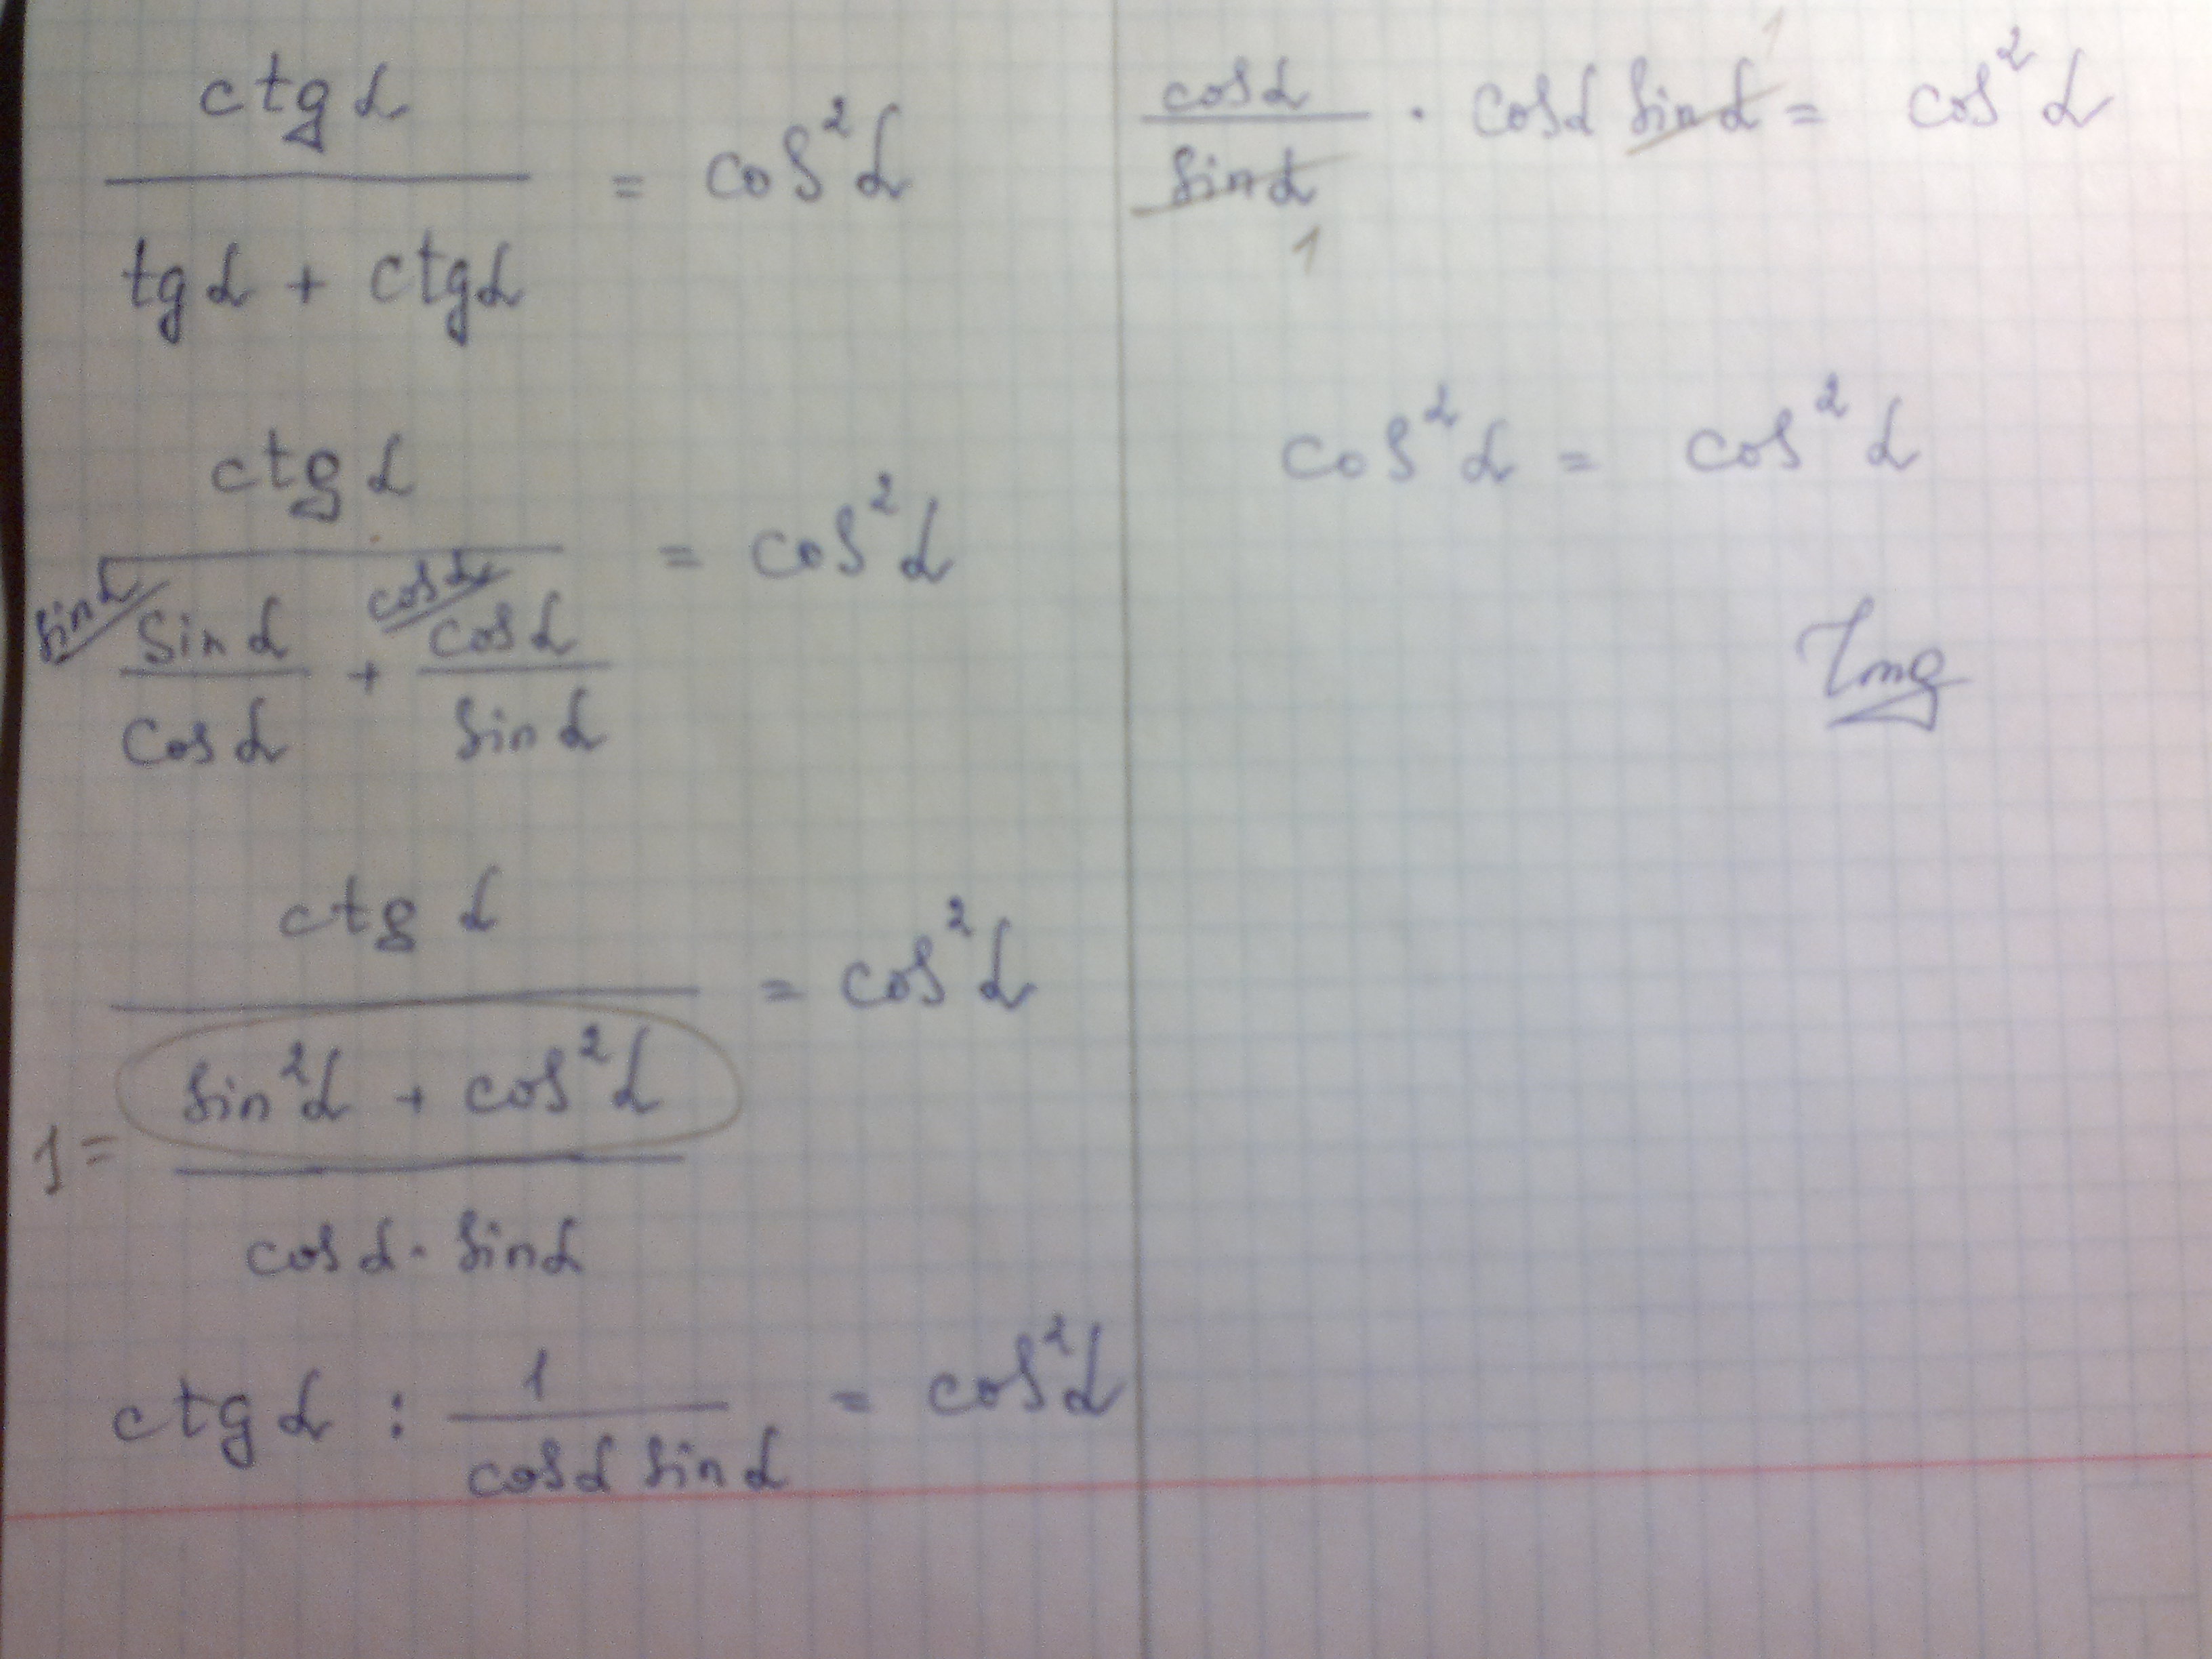 ctg α / (tg α + ctg α) = cos²α
ctg α / (sin α / cos α + cos α / sin α) = cos²α
sin α cos α
ctg α / ((sin²α + cos²α) / (cos α · sin α)) = cos²α
1 =
ctg α : 1 / (cos α sin α) = cos²α
cos α / sin α · cos α sin α = cos²α
1 1
cos²α = cos²α